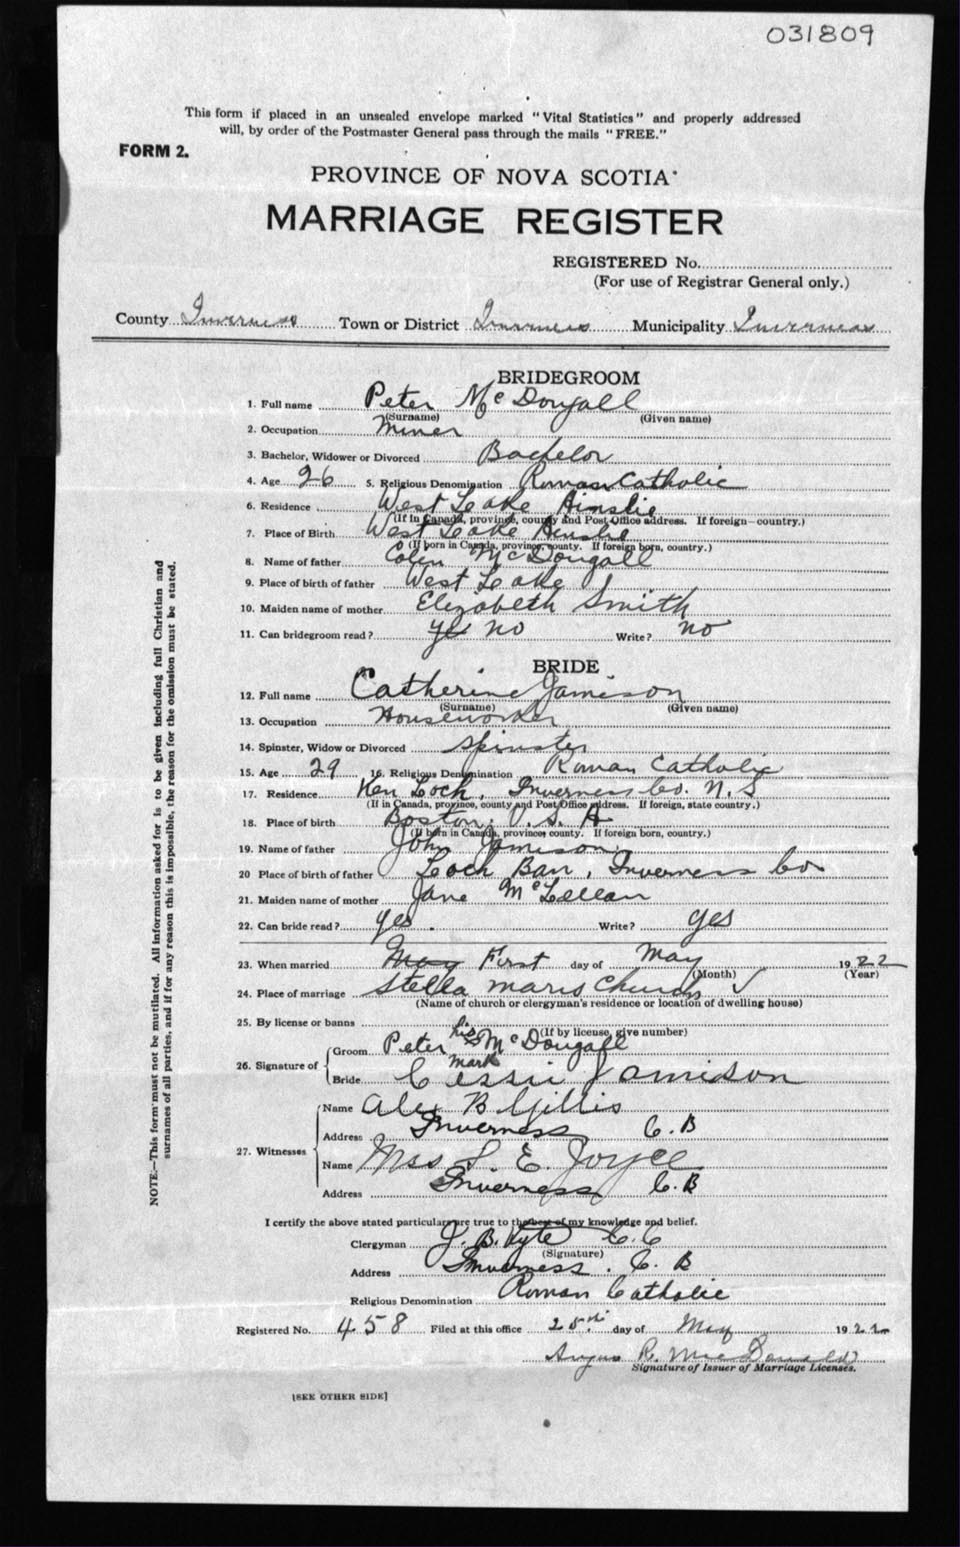 031809
This form if placed in an unsealed envelope marked "Vital Statistics" and properly addressed
will, by order of the Postmaster General pass through the mails "FREE."
FORM 2.
PROVINCE OF NOVA SCOTIA
MARRIAGE REGISTER
REGISTERED No.
(For use of Registrar General only.)
County Inverness Town or District Inverness Municipality Inverness
BRIDEGROOM
1. Full name Peter McDougall
(Surname) (Given name)
2. Occupation Miner
3. Bachelor, Widower or Divorced Bachelor
4. Age 26 5. Religious Denomination Roman Catholic
6. Residence West Lake Ainslie
(If in Canada, province, county and Post Office address. If foreign—country.)
7. Place of Birth West Lake Ainslie
(If born in Canada, province, county. If foreign born, country.)
8. Name of father Colen McDougall
9. Place of birth of father West Lake
10. Maiden name of mother Elizabeth Smith
11. Can bridegroom read? yes no Write? no
BRIDE
12. Full name Catherine Jamison
(Surname) (Given name)
13. Occupation Houseworker
14. Spinster, Widow or Divorced Spinster
15. Age 29 16. Religious Denomination Roman Catholic
17. Residence Ken Loch, Inverness Co. N.S
(If in Canada, province, county and Post Office address. If foreign, state country.)
18. Place of birth Boston. U.S.A
(If born in Canada, province, county. If foreign born, country.)
19. Name of father John Jamison
20 Place of birth of father Loch Ban, Inverness Co
21. Maiden name of mother Jane McLellan
22. Can bride read? yes. Write? yes
23. When married May First day of May 1922
(Month) (Year)
24. Place of marriage Stella Maris Church
(Name of church or clergyman's residence or location of dwelling house)
25. By license or banns
(If by license, give number)
26. Signature of
Groom Peter his McDougall
mark
Bride Cassie Jamison
27. Witnesses
Name Alex B Gillis
Address Inverness C.B
Name Mrs E. Joyce
Address Inverness C.B
I certify the above stated particulars are true to the best of my knowledge and belief.
Clergyman J. B. Kyte C.C
(Signature)
Address Inverness. C. B
Religious Denomination Roman Catholic
Registered No. 458 Filed at this office 25th day of May 1922
Angus R. MacDonald
Signature of Issuer of Marriage Licenses.
[SEE OTHER SIDE]
NOTE.—This form must not be mutilated. All information asked for is to be given including full Christian and
surnames of all parties, and if for any reason this is impossible, the reason for the omission must be stated.